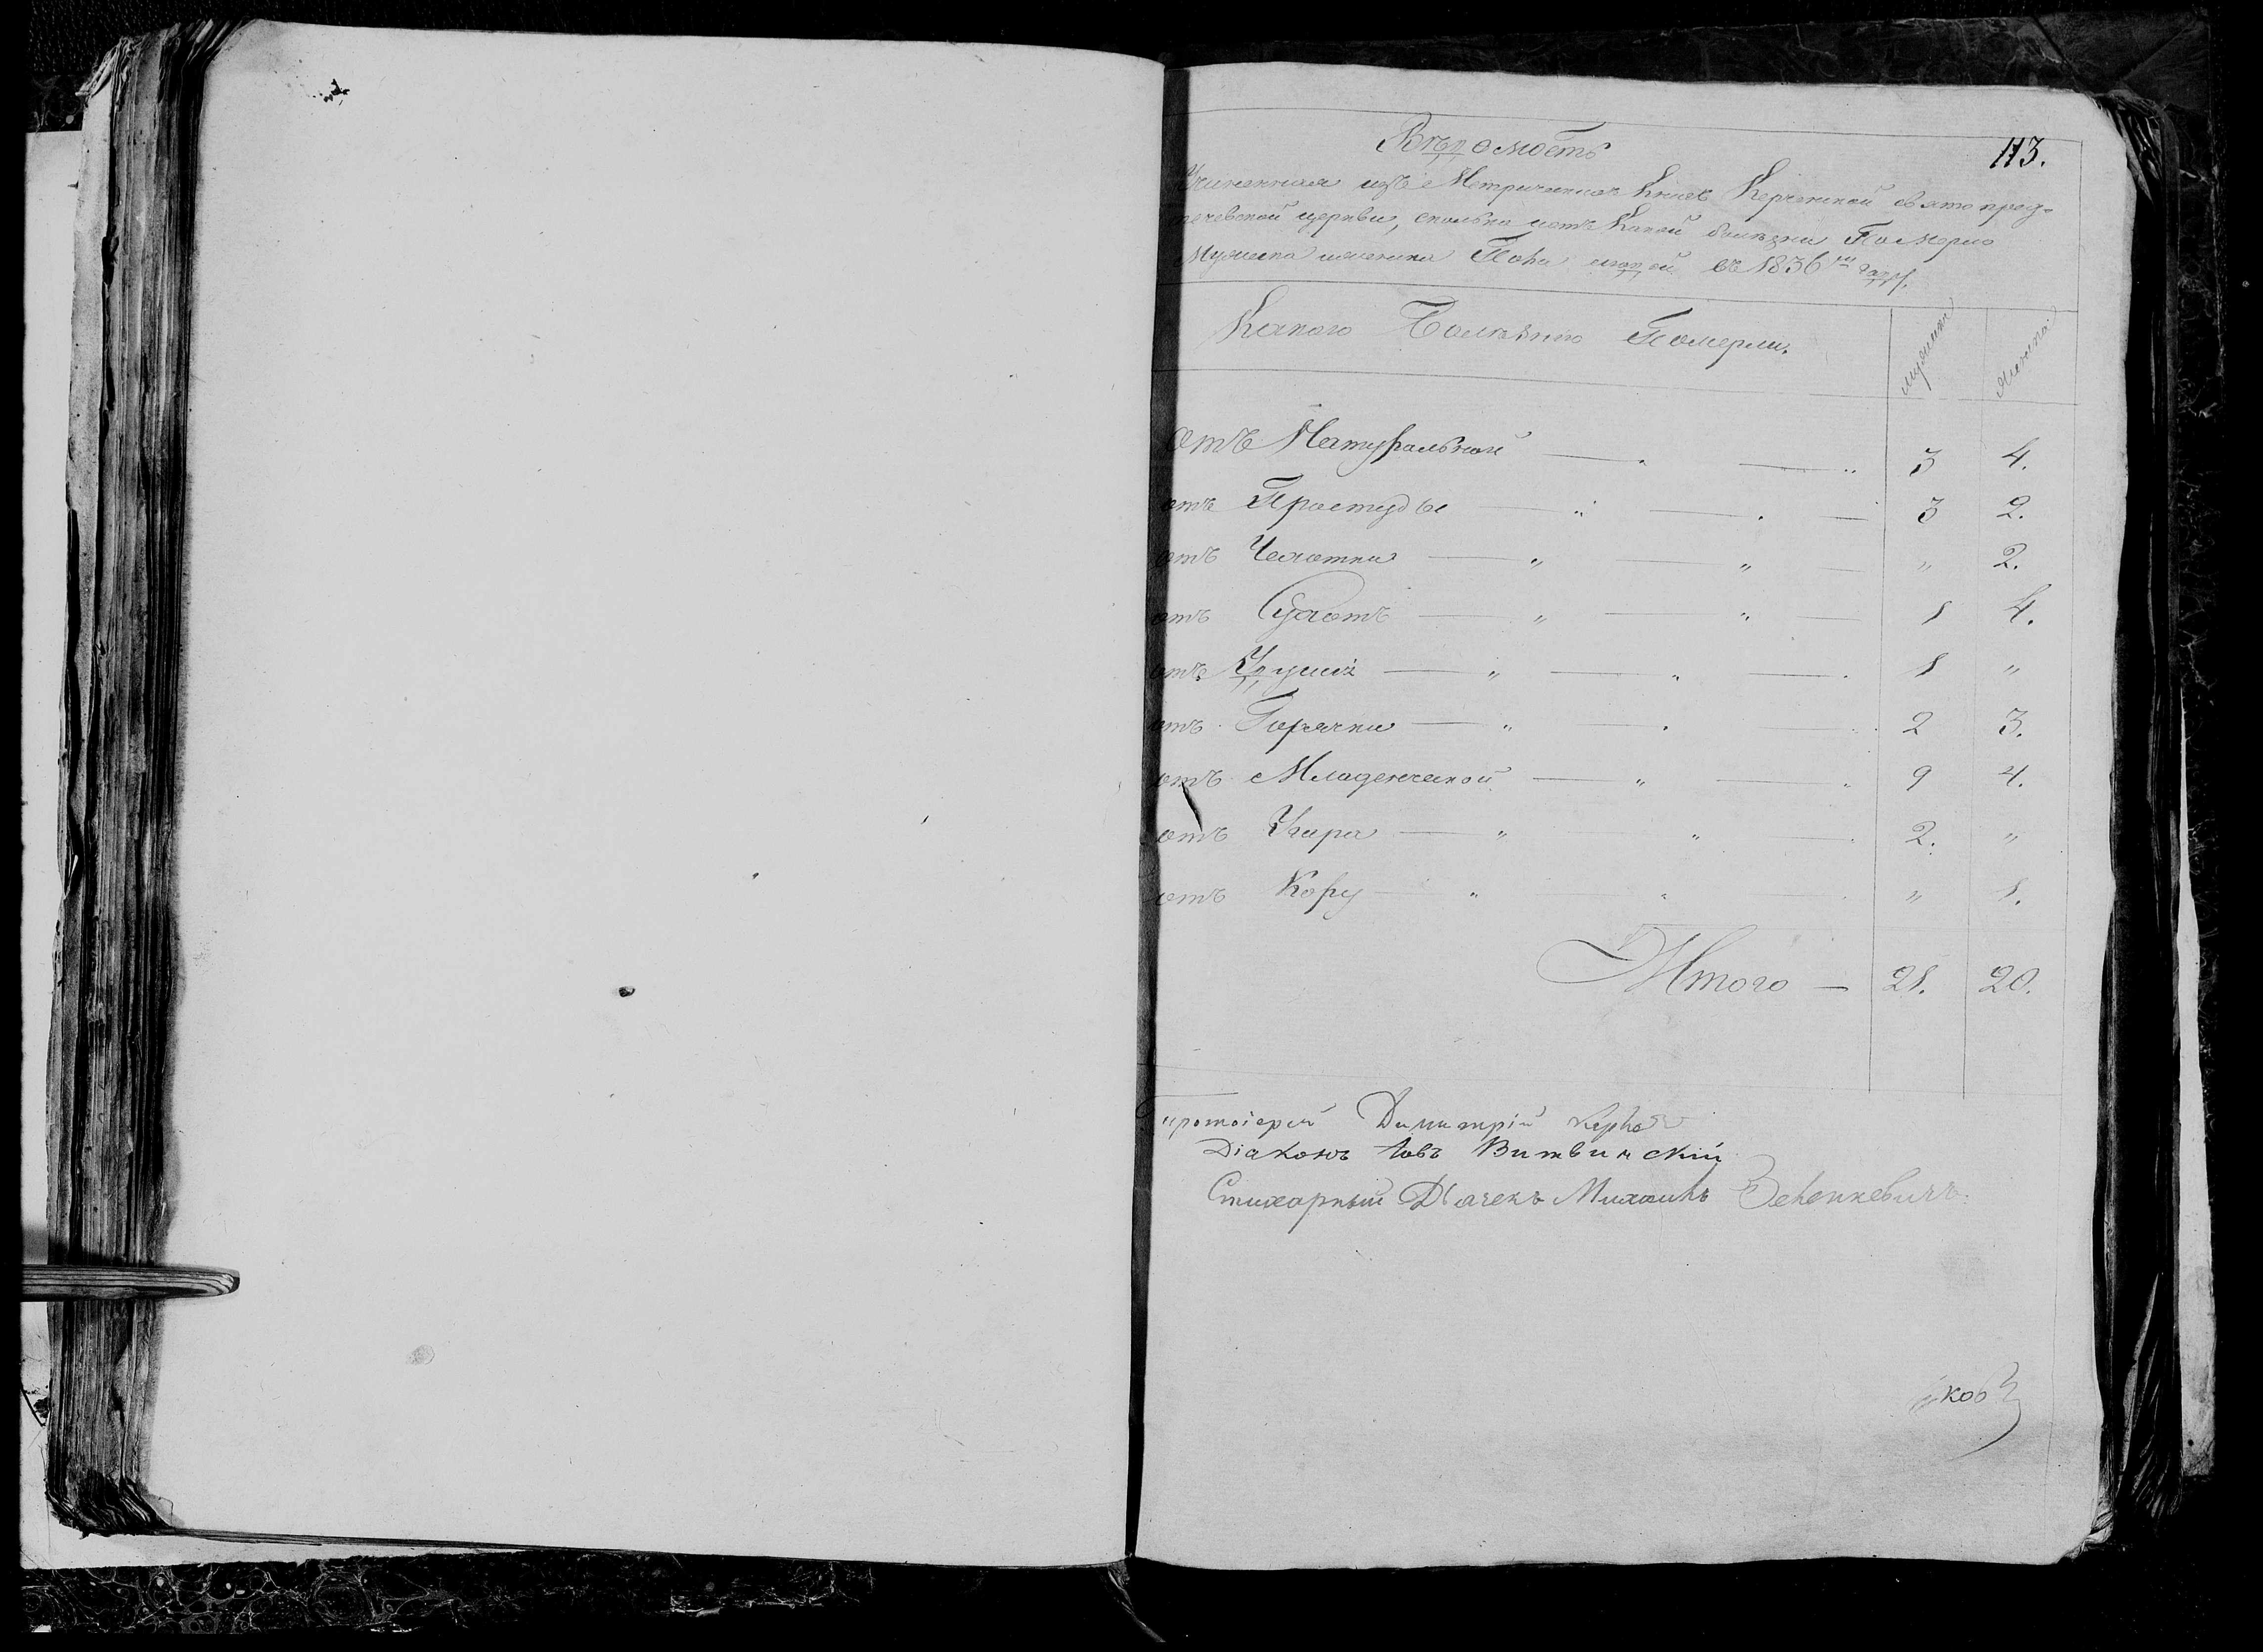 113.
Вѣдомость
Учиненная изъ Метрическихъ Книгъ Керченской святопред-
течевской церкви, сколько и отъ Какой болѣзни Померло
Мужеска и женска Пола людей въ 1836мъ году.
Какого Болѣзнію Померли. мужеска женска
отъ Натуральной 3 4.
отъ Простуды 3 2.
отъ Чехотки „ 2.
отъ Сухотъ 1 4.
отъ Удушіи 1 „
отъ Горячки 2 3.
отъ Младенческой 9 4.
отъ Удара 2. „
отъ Кору „ 1.
Итого — 21. 20.
протоіерей Димитрій
Діаконъ Іовъ Витвинскій
Стихарный Дьячекъ Михаилъ Зеленкевичъ.
ковъ